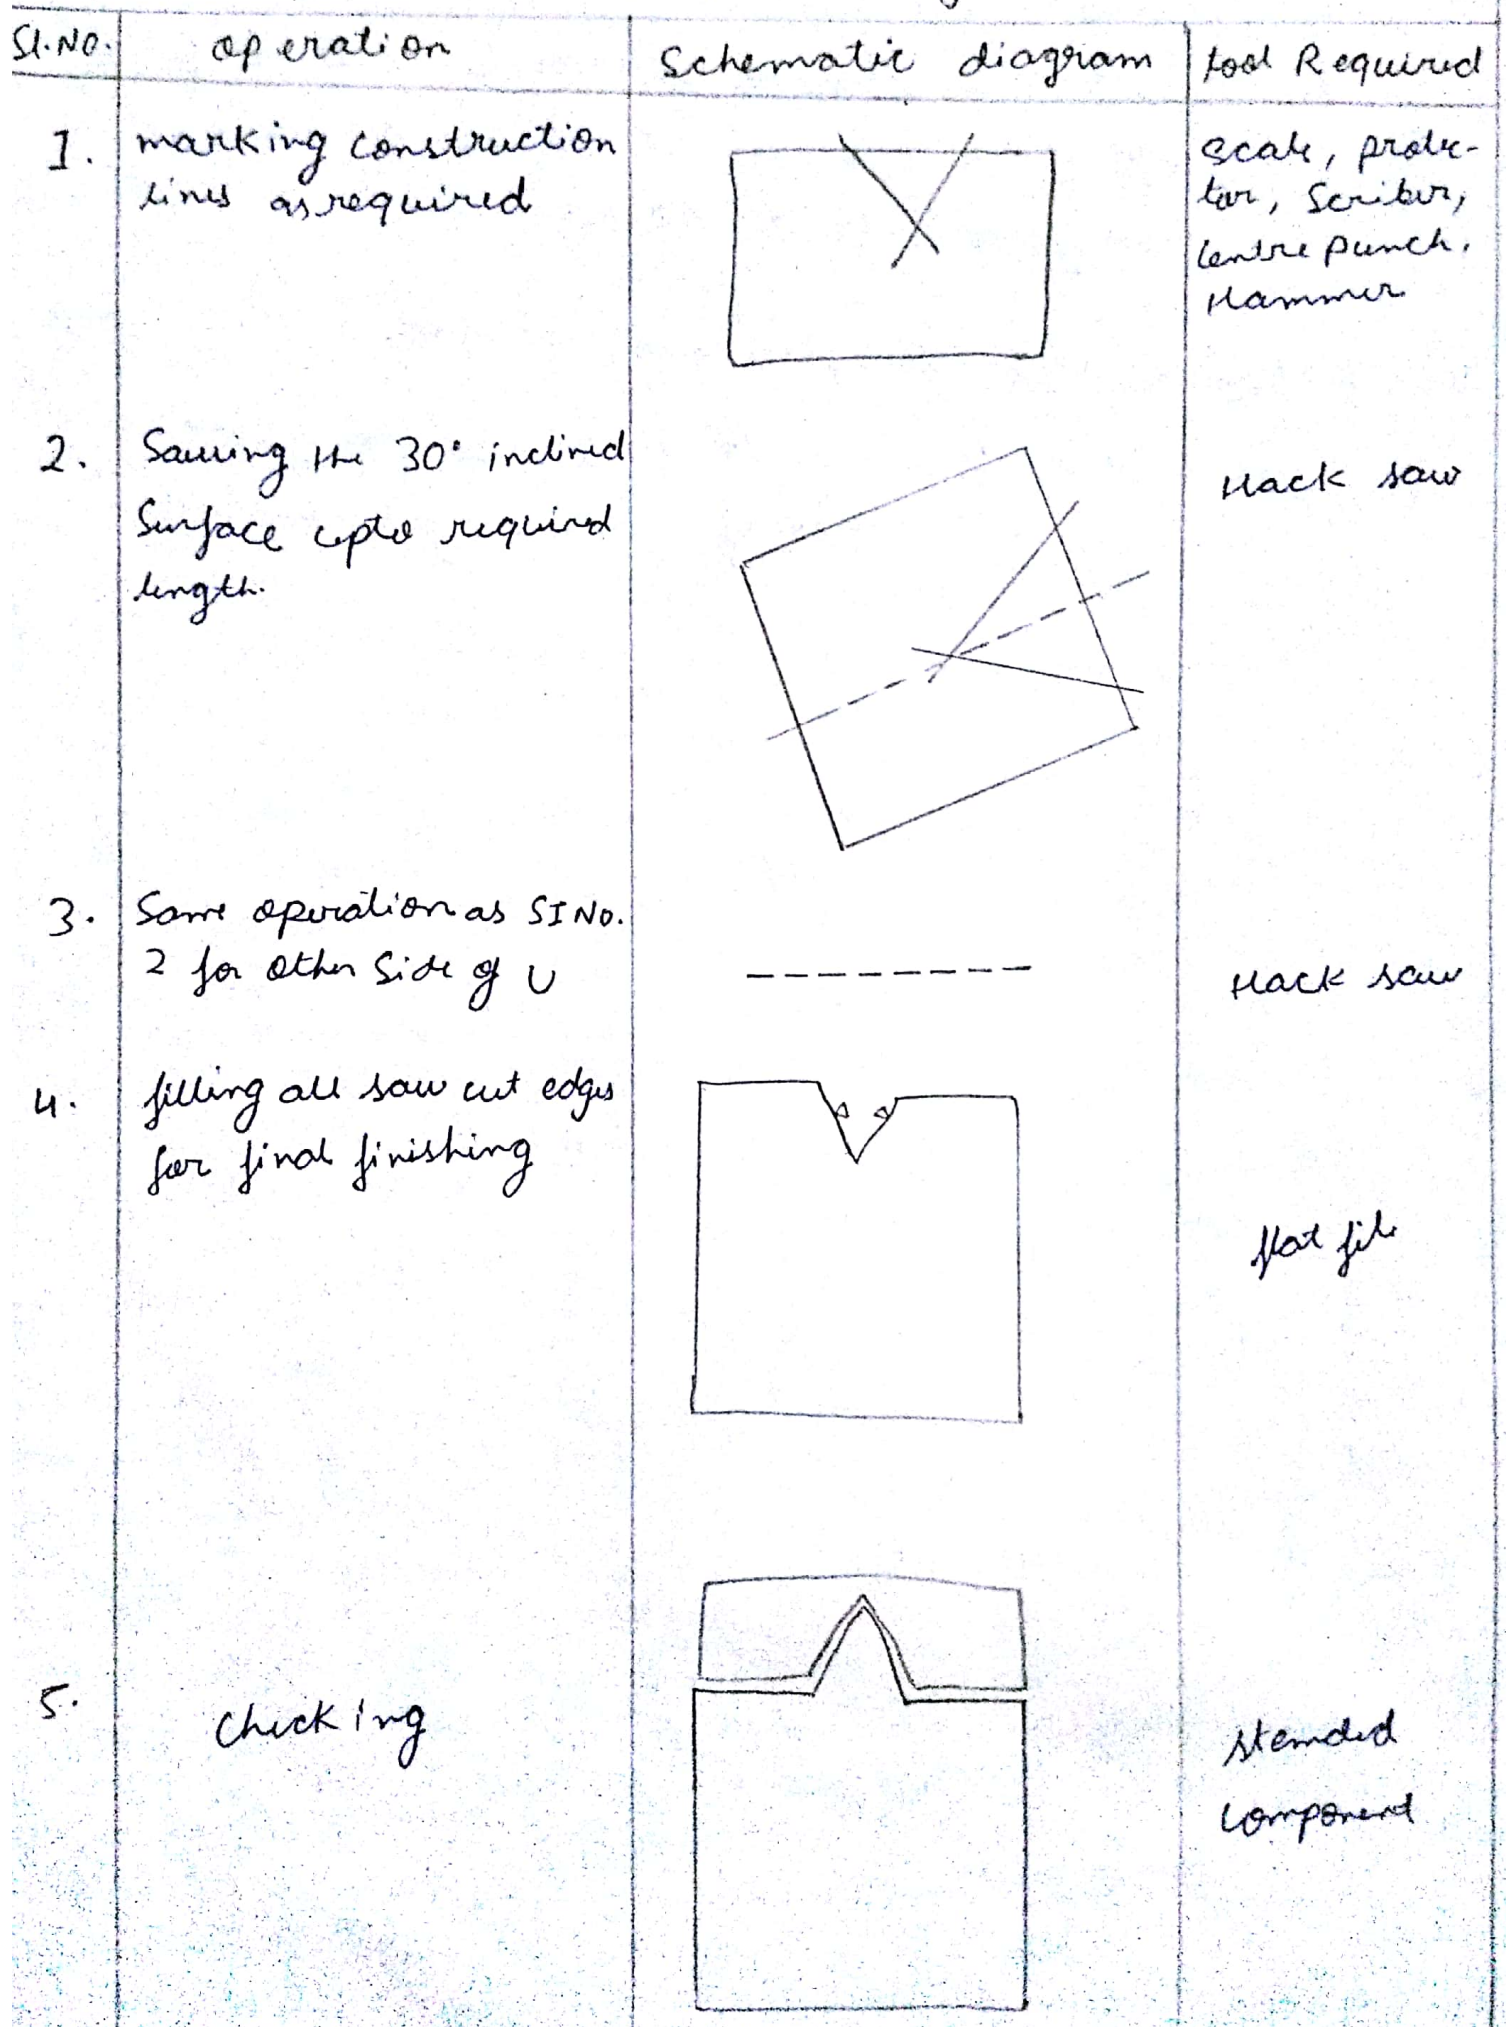 Sl.No. operation Schematic diagram tool Required
1. marking construction
lines as required
Scale, protec-
tor, Scriber,
Centre punch.
Hammer
2. Sawing the 30° inclined
Surface upto required
length.
Hack saw
3. Same operation as SI No.
2 for other Side of U
Hack saw
4. filling all saw cut edges
for final finishing
flat file
5. Checking
standed
component